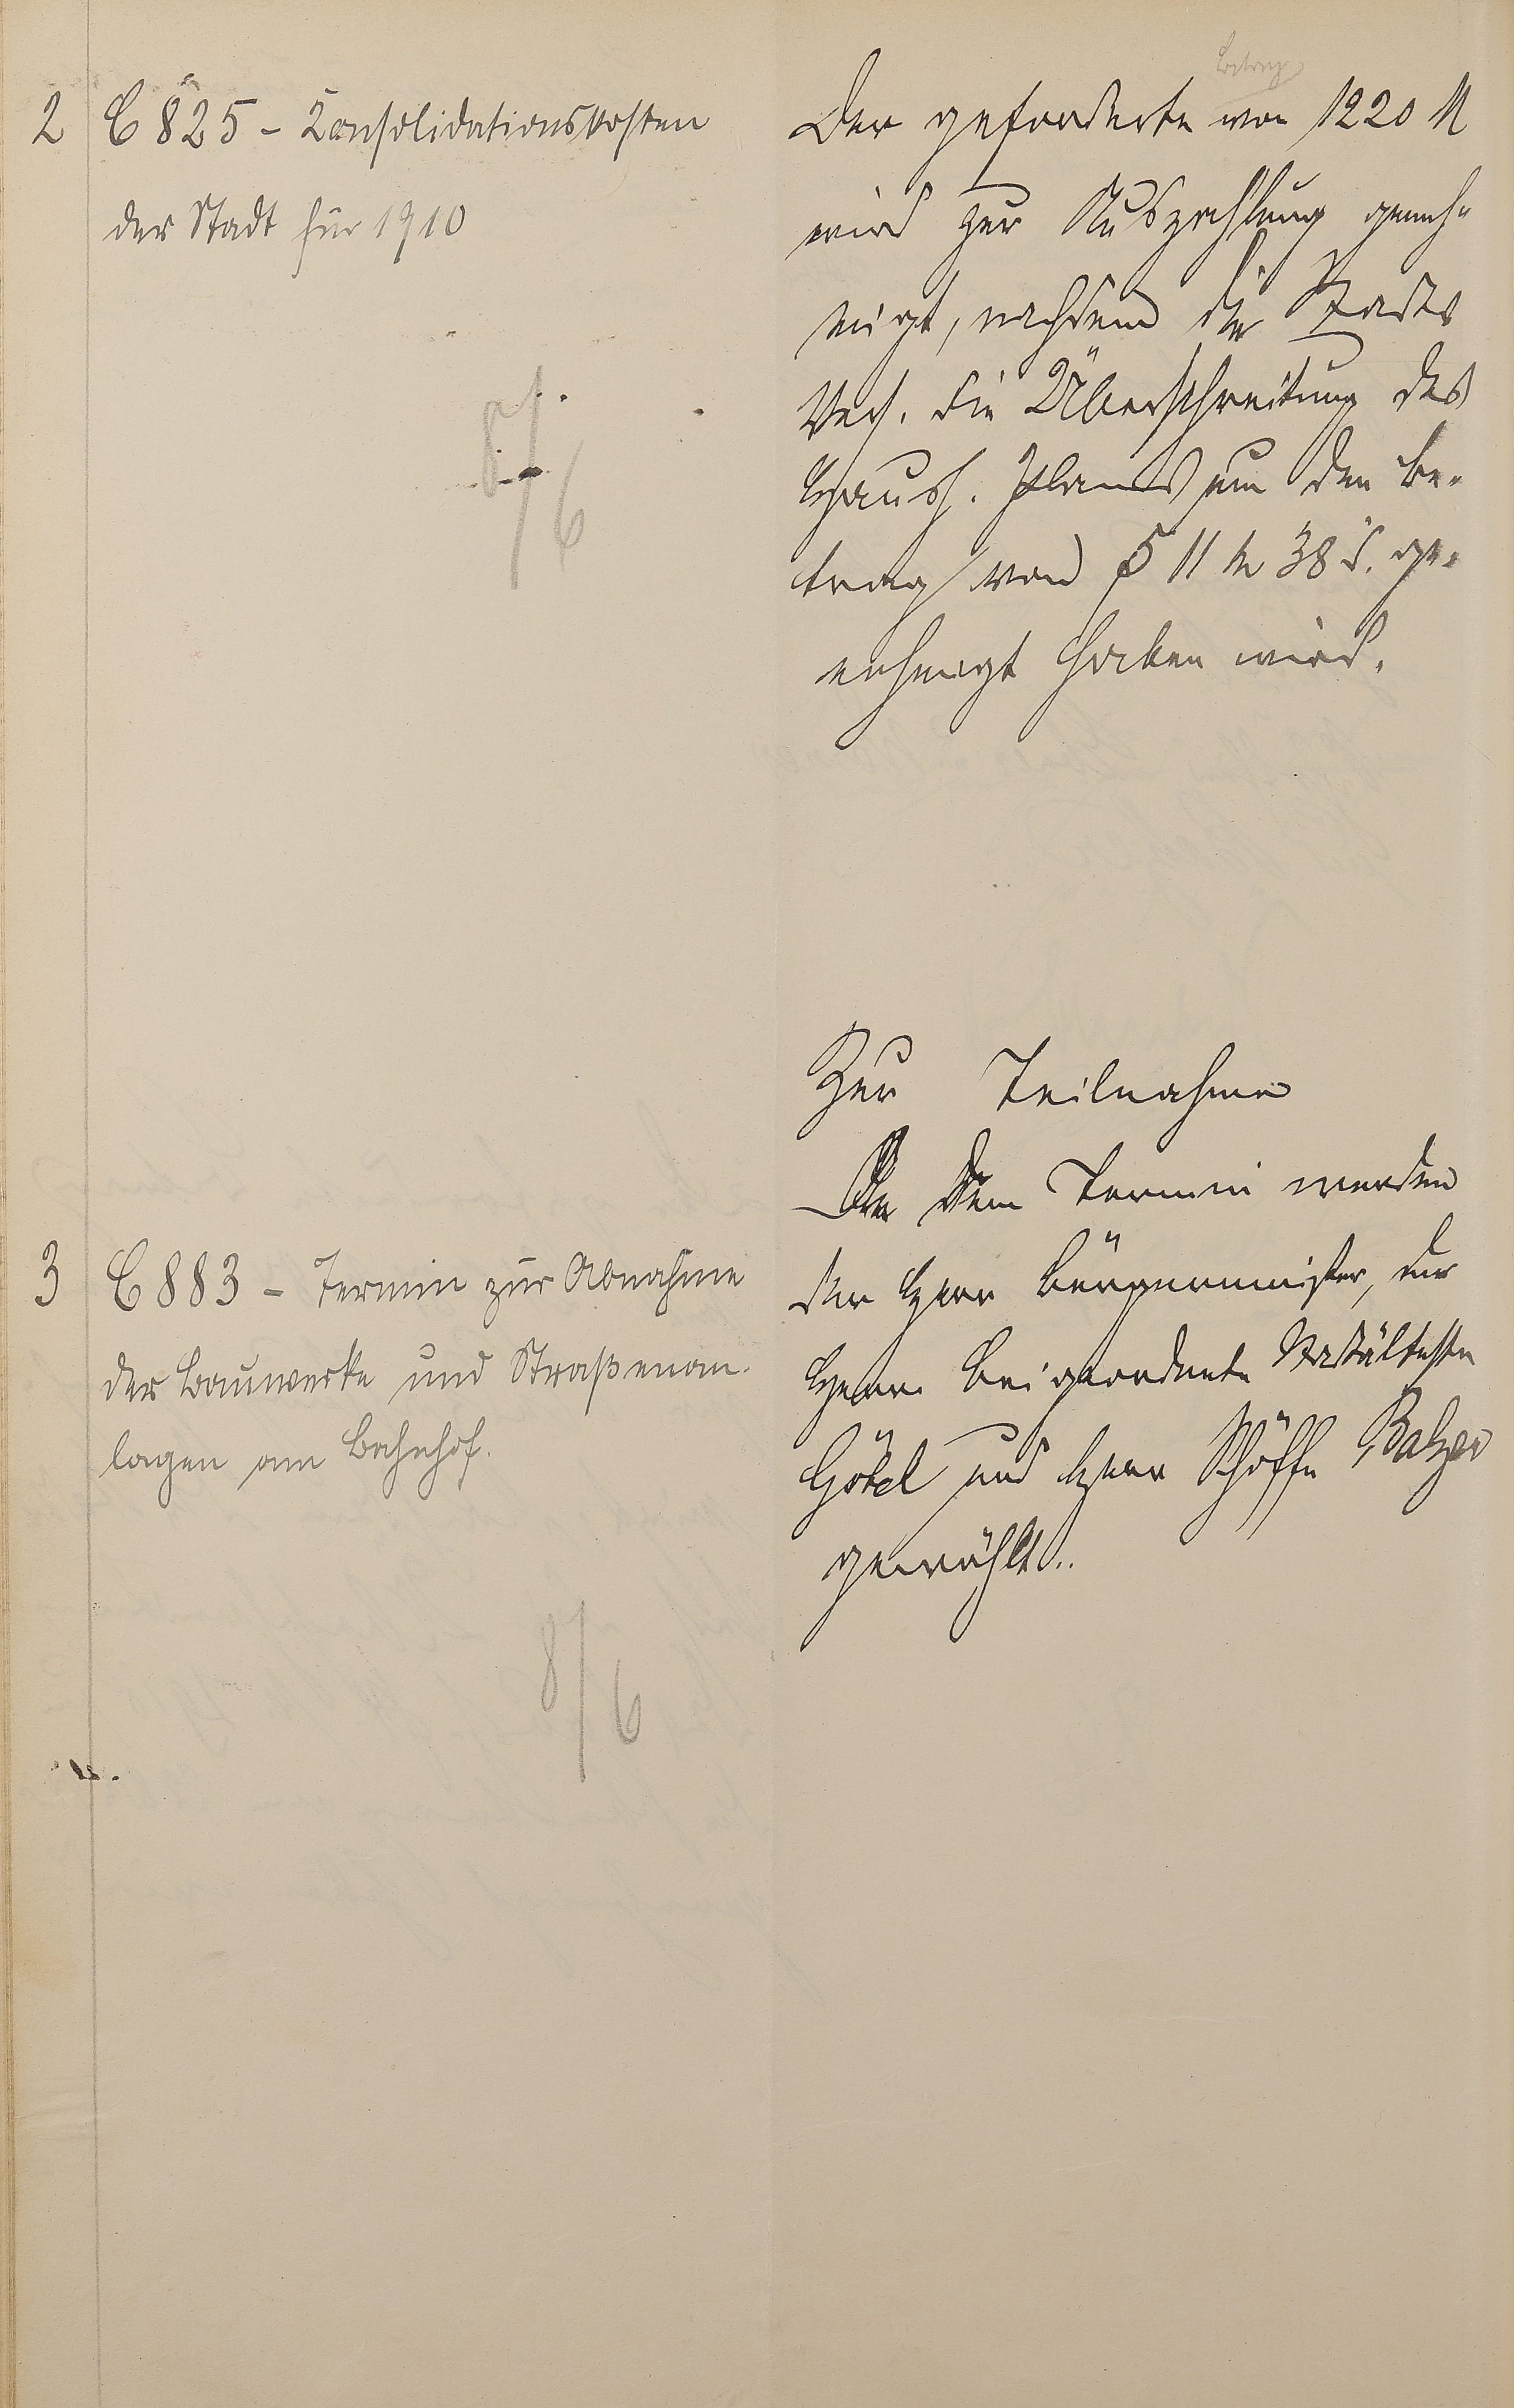 2 C 825 - Consolidationskosten
der Stadt für 1910
8/6
Betrag
Der geforderte von 1220 M
wird zur Auszahlung geneh-
migt, nachdem die Stadtv
Vers. die Überschreitung des
Haush. Planes um den Be-
trag von 511 M 38 d. ge-
nehmigt haben wird.
3 C 883 - Termin zur Abnahme
der Bauwerke und Straßenan-
lagen am Bahnhof.
8/6
Zur Teilnahme
An dem Termin werden
der Herr Bürgermeister, der
Herr Beigeordnete Stadtälteste
Göbel und Herr Schöffe Balzer
gewählt.